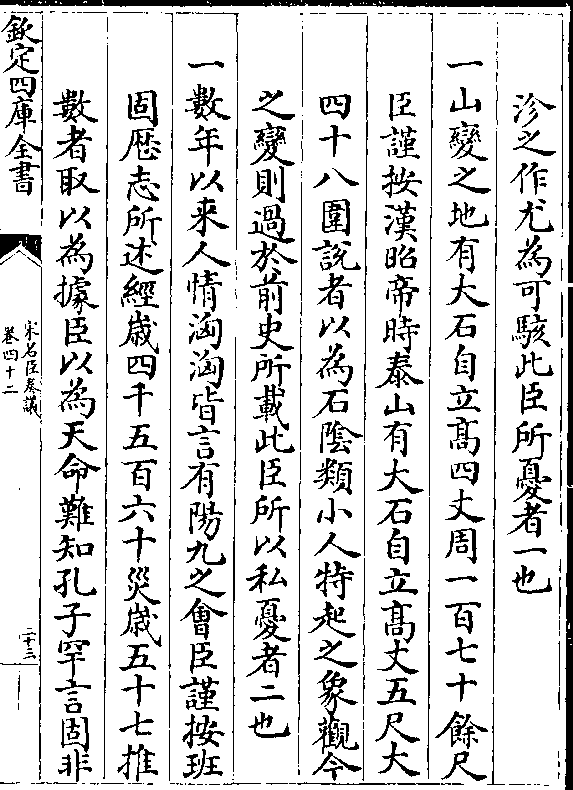 沴之作尤為可駭此臣所憂者一也
一山變之地有大石自立髙四丈周一百七十餘尺
臣謹按漢昭帝時泰山有大石自立髙丈五尺大
四十八圍説者以為石隂類小人特起之象觀今
之變則過於前史所載此臣所以私憂者二也
一數年以来人情洶洶皆言有陽九之㑹臣謹按班
固厯志所述經歳四千五百六十災歳五十七推
數者取以為據臣以為天命難知孔子罕言固非
欽定四庫全書
宋名臣奏議
卷四十二
二十三